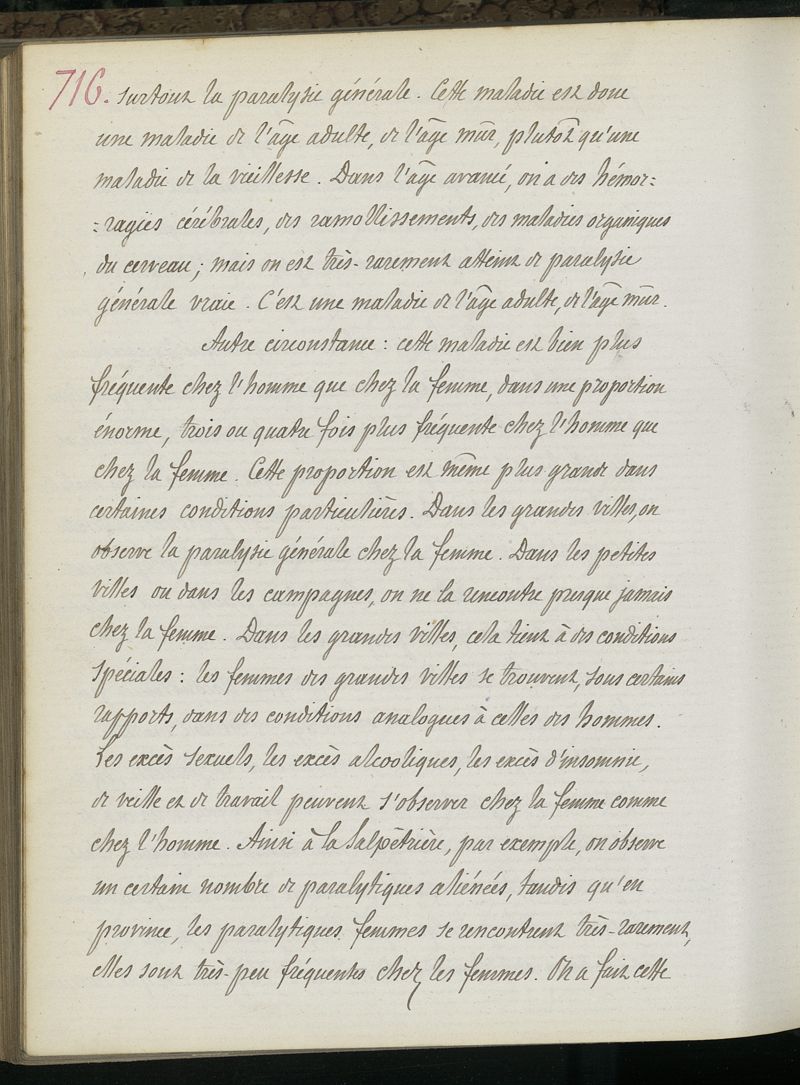 716. surtout la paralysie générale. Cette maladie est donc
une maladie de l'âge adulte, de l'âge mûr, plutôt qu'une
maladie de la vieillesse. Dans l'âge avancé, on a des hémor=
=ragies cérébrales, des ramollissements, des maladies organiques
du cerveau; mais on est très-rarement atteint de paralysie
générale vraie. C'est une maladie de l'âge adulte, de l'âge mûr.
Autre circonstance: cette maladie est bien plus
fréquente chez l'homme que chez la femme, dans une proportion
énorme, trois ou quatre fois plus fréquente chez l'homme que
chez la femme. Cette proportion est même plus grande dans
certaines conditions particulières. Dans les grandes villes, on
observe la paralysie générale chez la femme. Dans les petites
villes ou dans les campagnes, on ne la rencontre presque jamais
chez la femme. Dans les grandes villes, cela tient à des conditions
spéciales: les femmes des grandes villes se trouvent, sous certains
rapports, dans des conditions analogues à celles des hommes.
Les excès sexuels, les excès alcooliques, les excès d'insomnie,
de veille et de travail peuvent s'observer chez la femme comme
chez l'homme. Ainsi à la Salpêtrière, par exemple, on observe
un certain nombre de paralytiques aliénées, tandis qu'en
province, les paralytiques femmes se rencontrent très-rarement,
elles sont très-peu fréquentes chez les femmes. On a fait cette